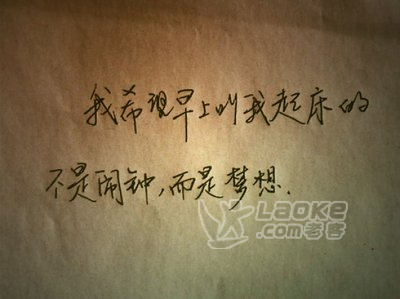 我希望早上叫我起床的
不是闹钟,而是梦想.
LAOKE
.com老客